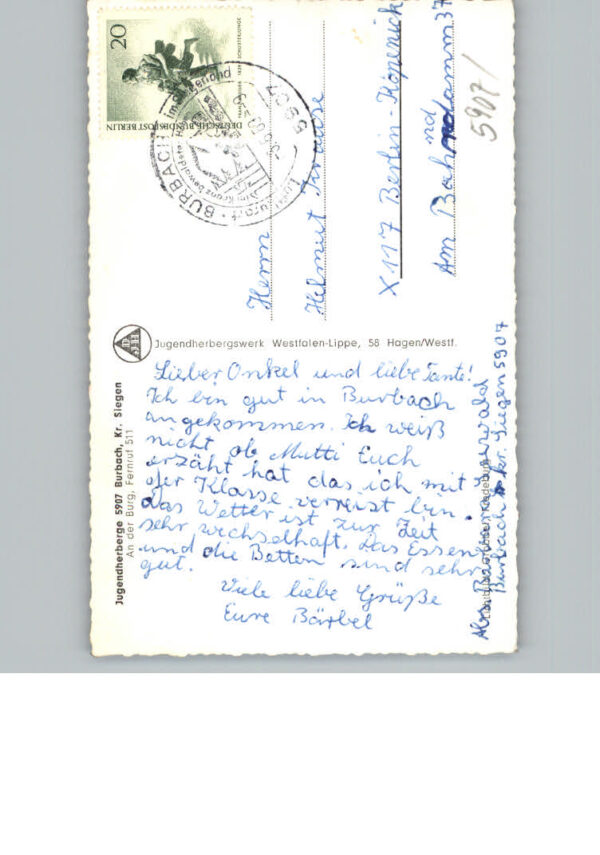 20
DEUTSCHE BUNDESPOST BERLIN
5907
BURBACH
5907/
Herrn
Helmut Krause
X 117 Berlin-Köpenick
nd
Am Bahndamm 37
Jugendherbergswerk Westfalen-Lippe, 58 Hagen/Westf.
Jugendherberge 5907 Burbach, Kr. Siegen
An der Burg, Fernruf 511
Lieber Onkel und liebe Tante!
Ich bin gut in Burbach
angekommen. Ich weiß
nicht ob Mutti Euch
erzäht hat das ich mit
der Klasse verreist bin.
Das Wetter ist zur Zeit
sehr wechselhaft. Das Essen
und die Betten sind sehr
gut.
Viele liebe Grüße
Eure Bärbel
Burbach kr. Siegen 5907